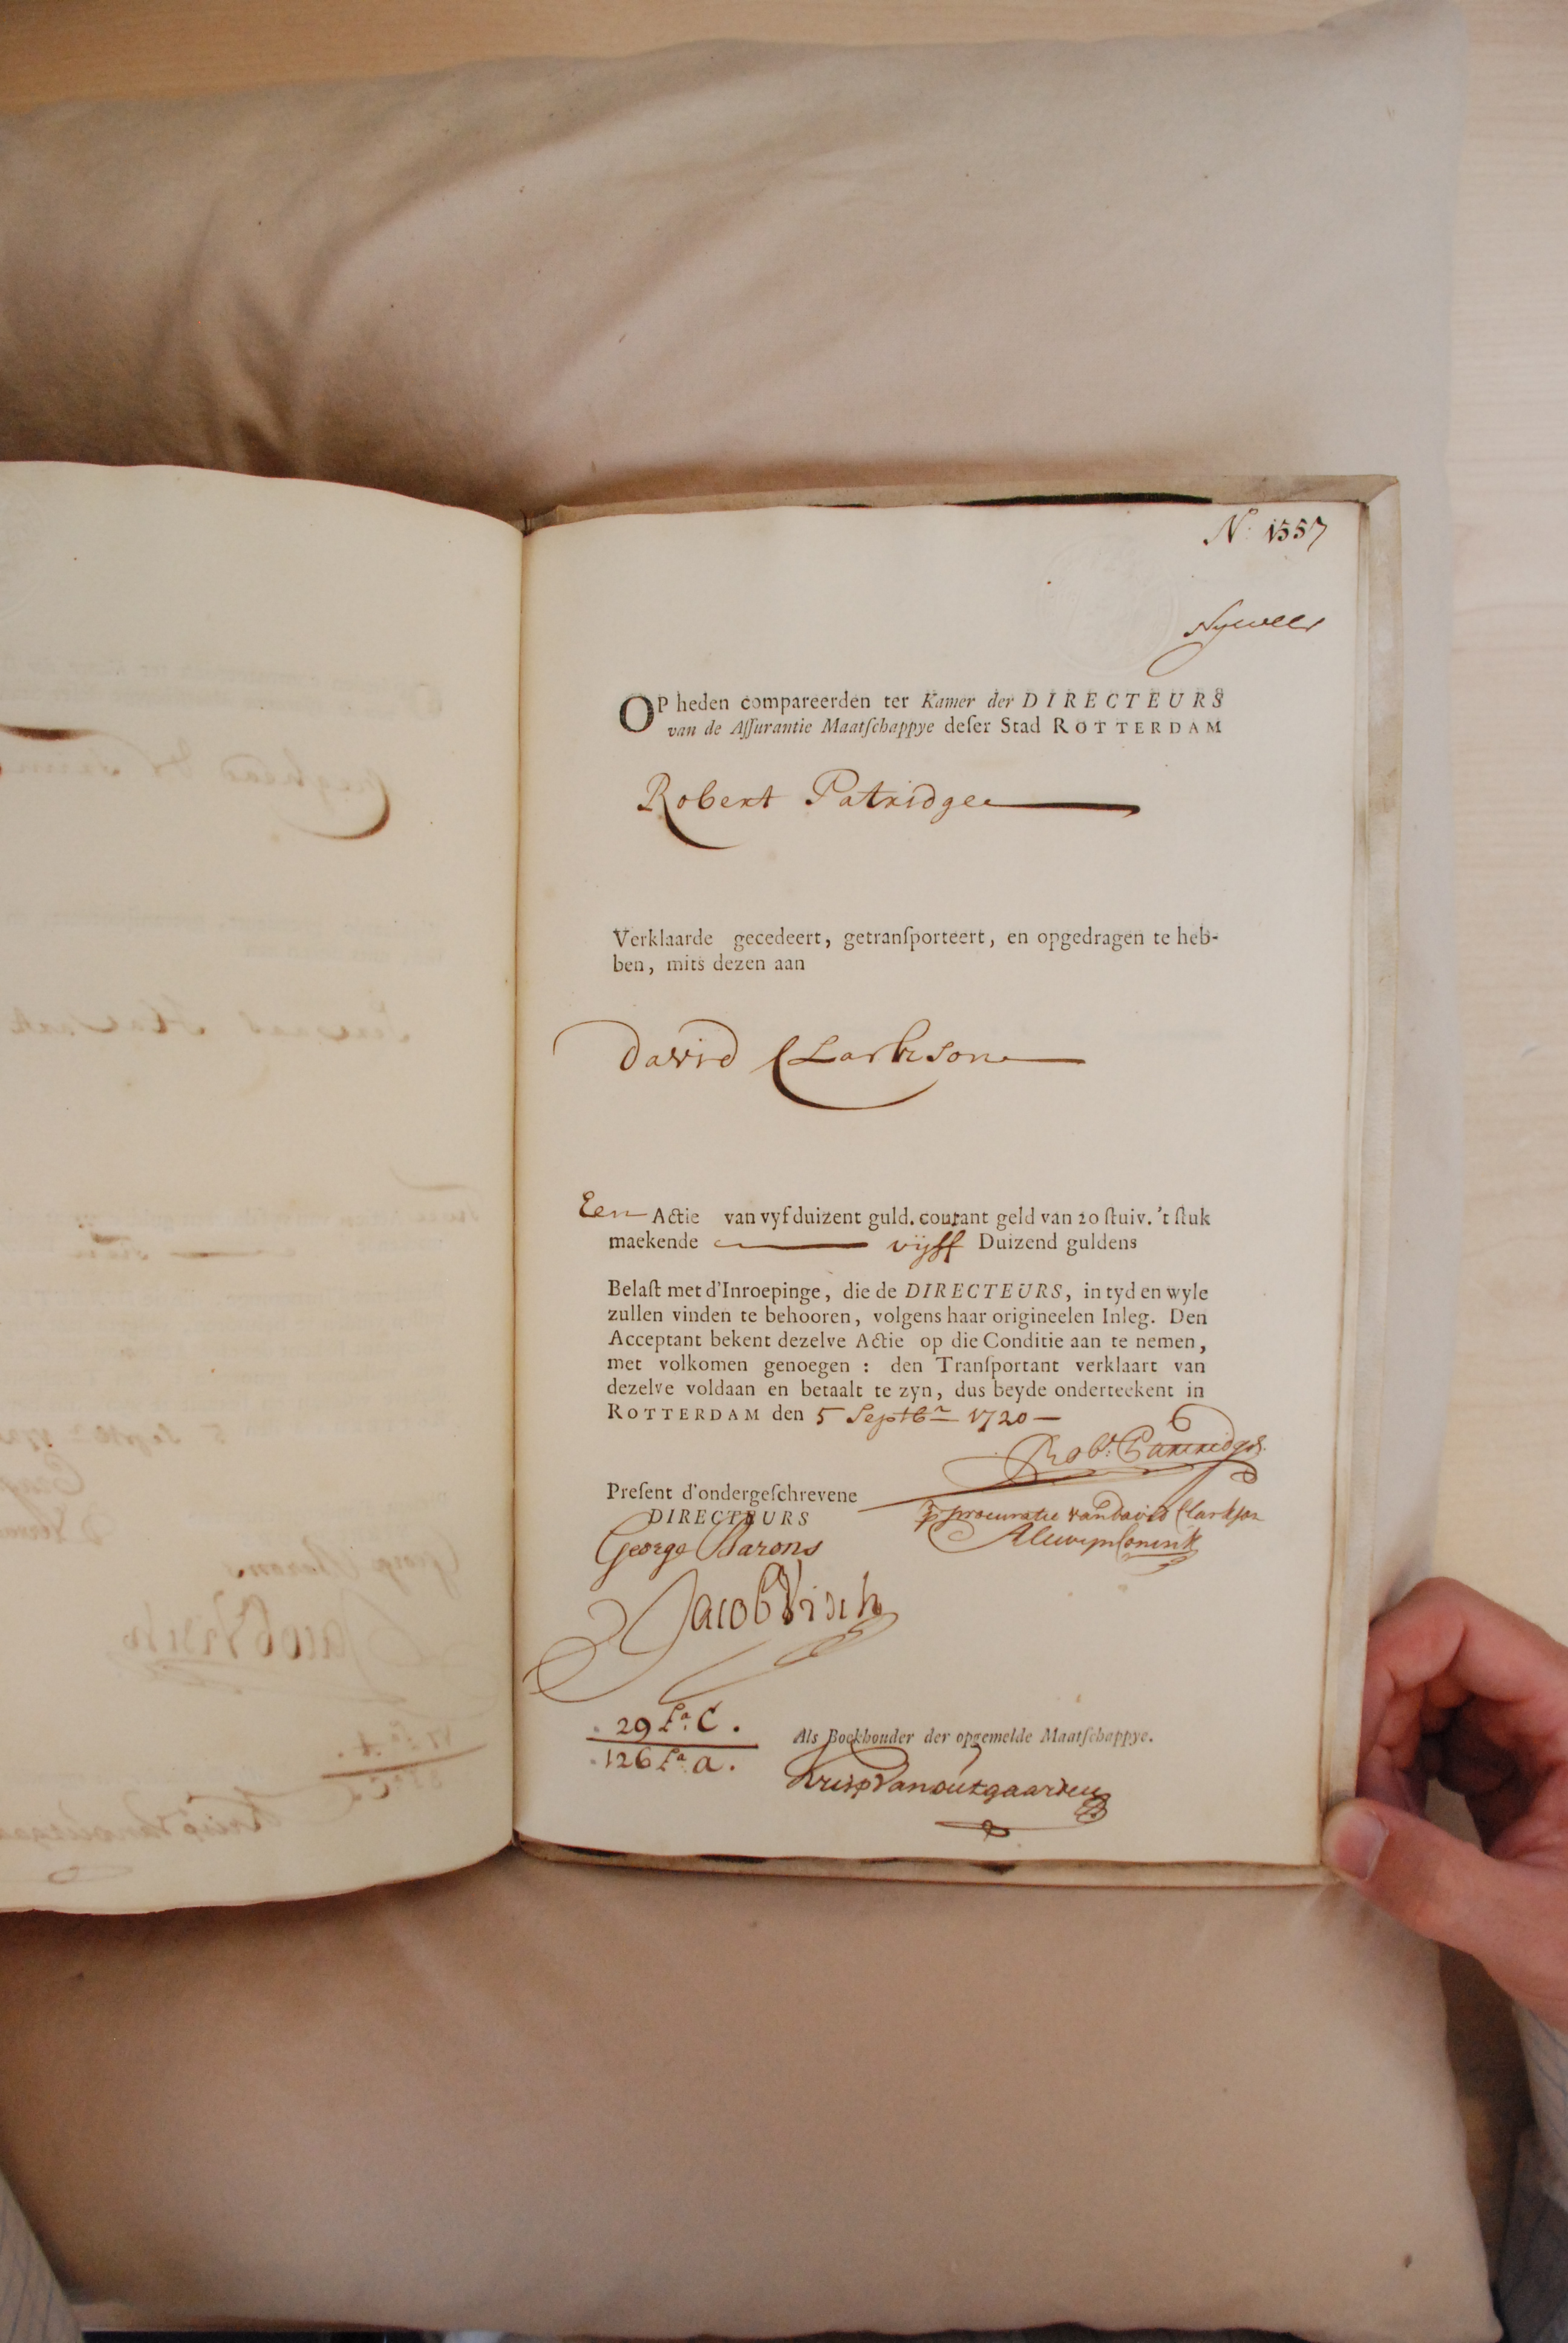 N: 1557
OP heden compareerden ter Kamer der DIRECTEURS
van de Aſſurantie Maatſchappye deſer Stad ROTTERDAM
Robert Patridge
Verklaarde gecedeert, getranſporteert, en opgedragen te heb-
ben, mits dezen aan
David Clarkson
Een Actie van vyf duizent guld. courant geld van 20 ſtuiv. 't ſtuk
maekende vijff Duizend guldens
Belaſt met d'Inroepinge, die de DIRECTEURS, in tyd en wyle
zullen vinden te behooren, volgens haar origineelen Inleg. Den
Acceptant bekent dezelve Actie op die Conditie aan te nemen,
met volkomen genoegen : den Tranſportant verklaart van
dezelve voldaan en betaalt te zyn, dus beyde onderteekent in
ROTTERDAM den 5 Septbr 1720
Robt: Partridge
Preſent d'ondergeſchrevene
DIRECTEURS
p procuratie van David Clarkson
George Barons
Jacob Visch
29 La: C.
126 La: a.
Als Boekhouder der opgemelde Maatſchappye.